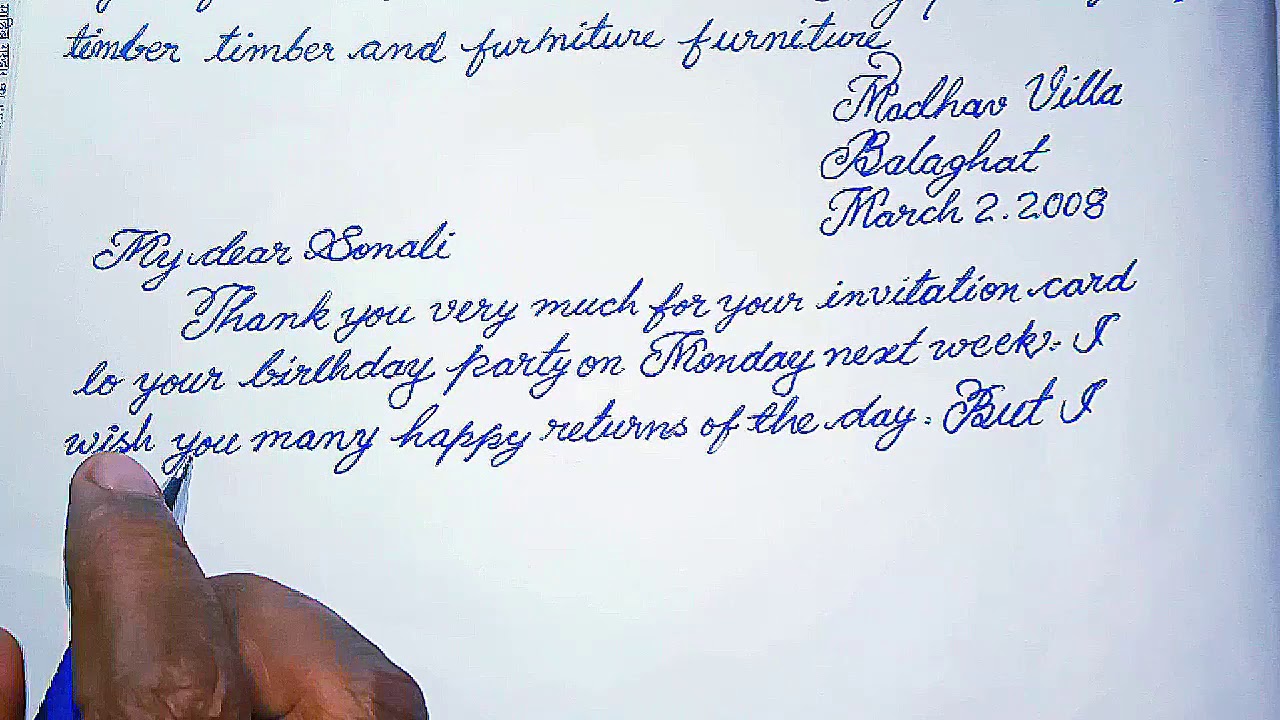 timber timber and furniture furniture
Madhav Villa
Balaghat
March 2.2008
My dear Sonali
Thank you very much for your invitation card
to your birthday party on Monday next week. I
wish you many happy returns of the day. But I